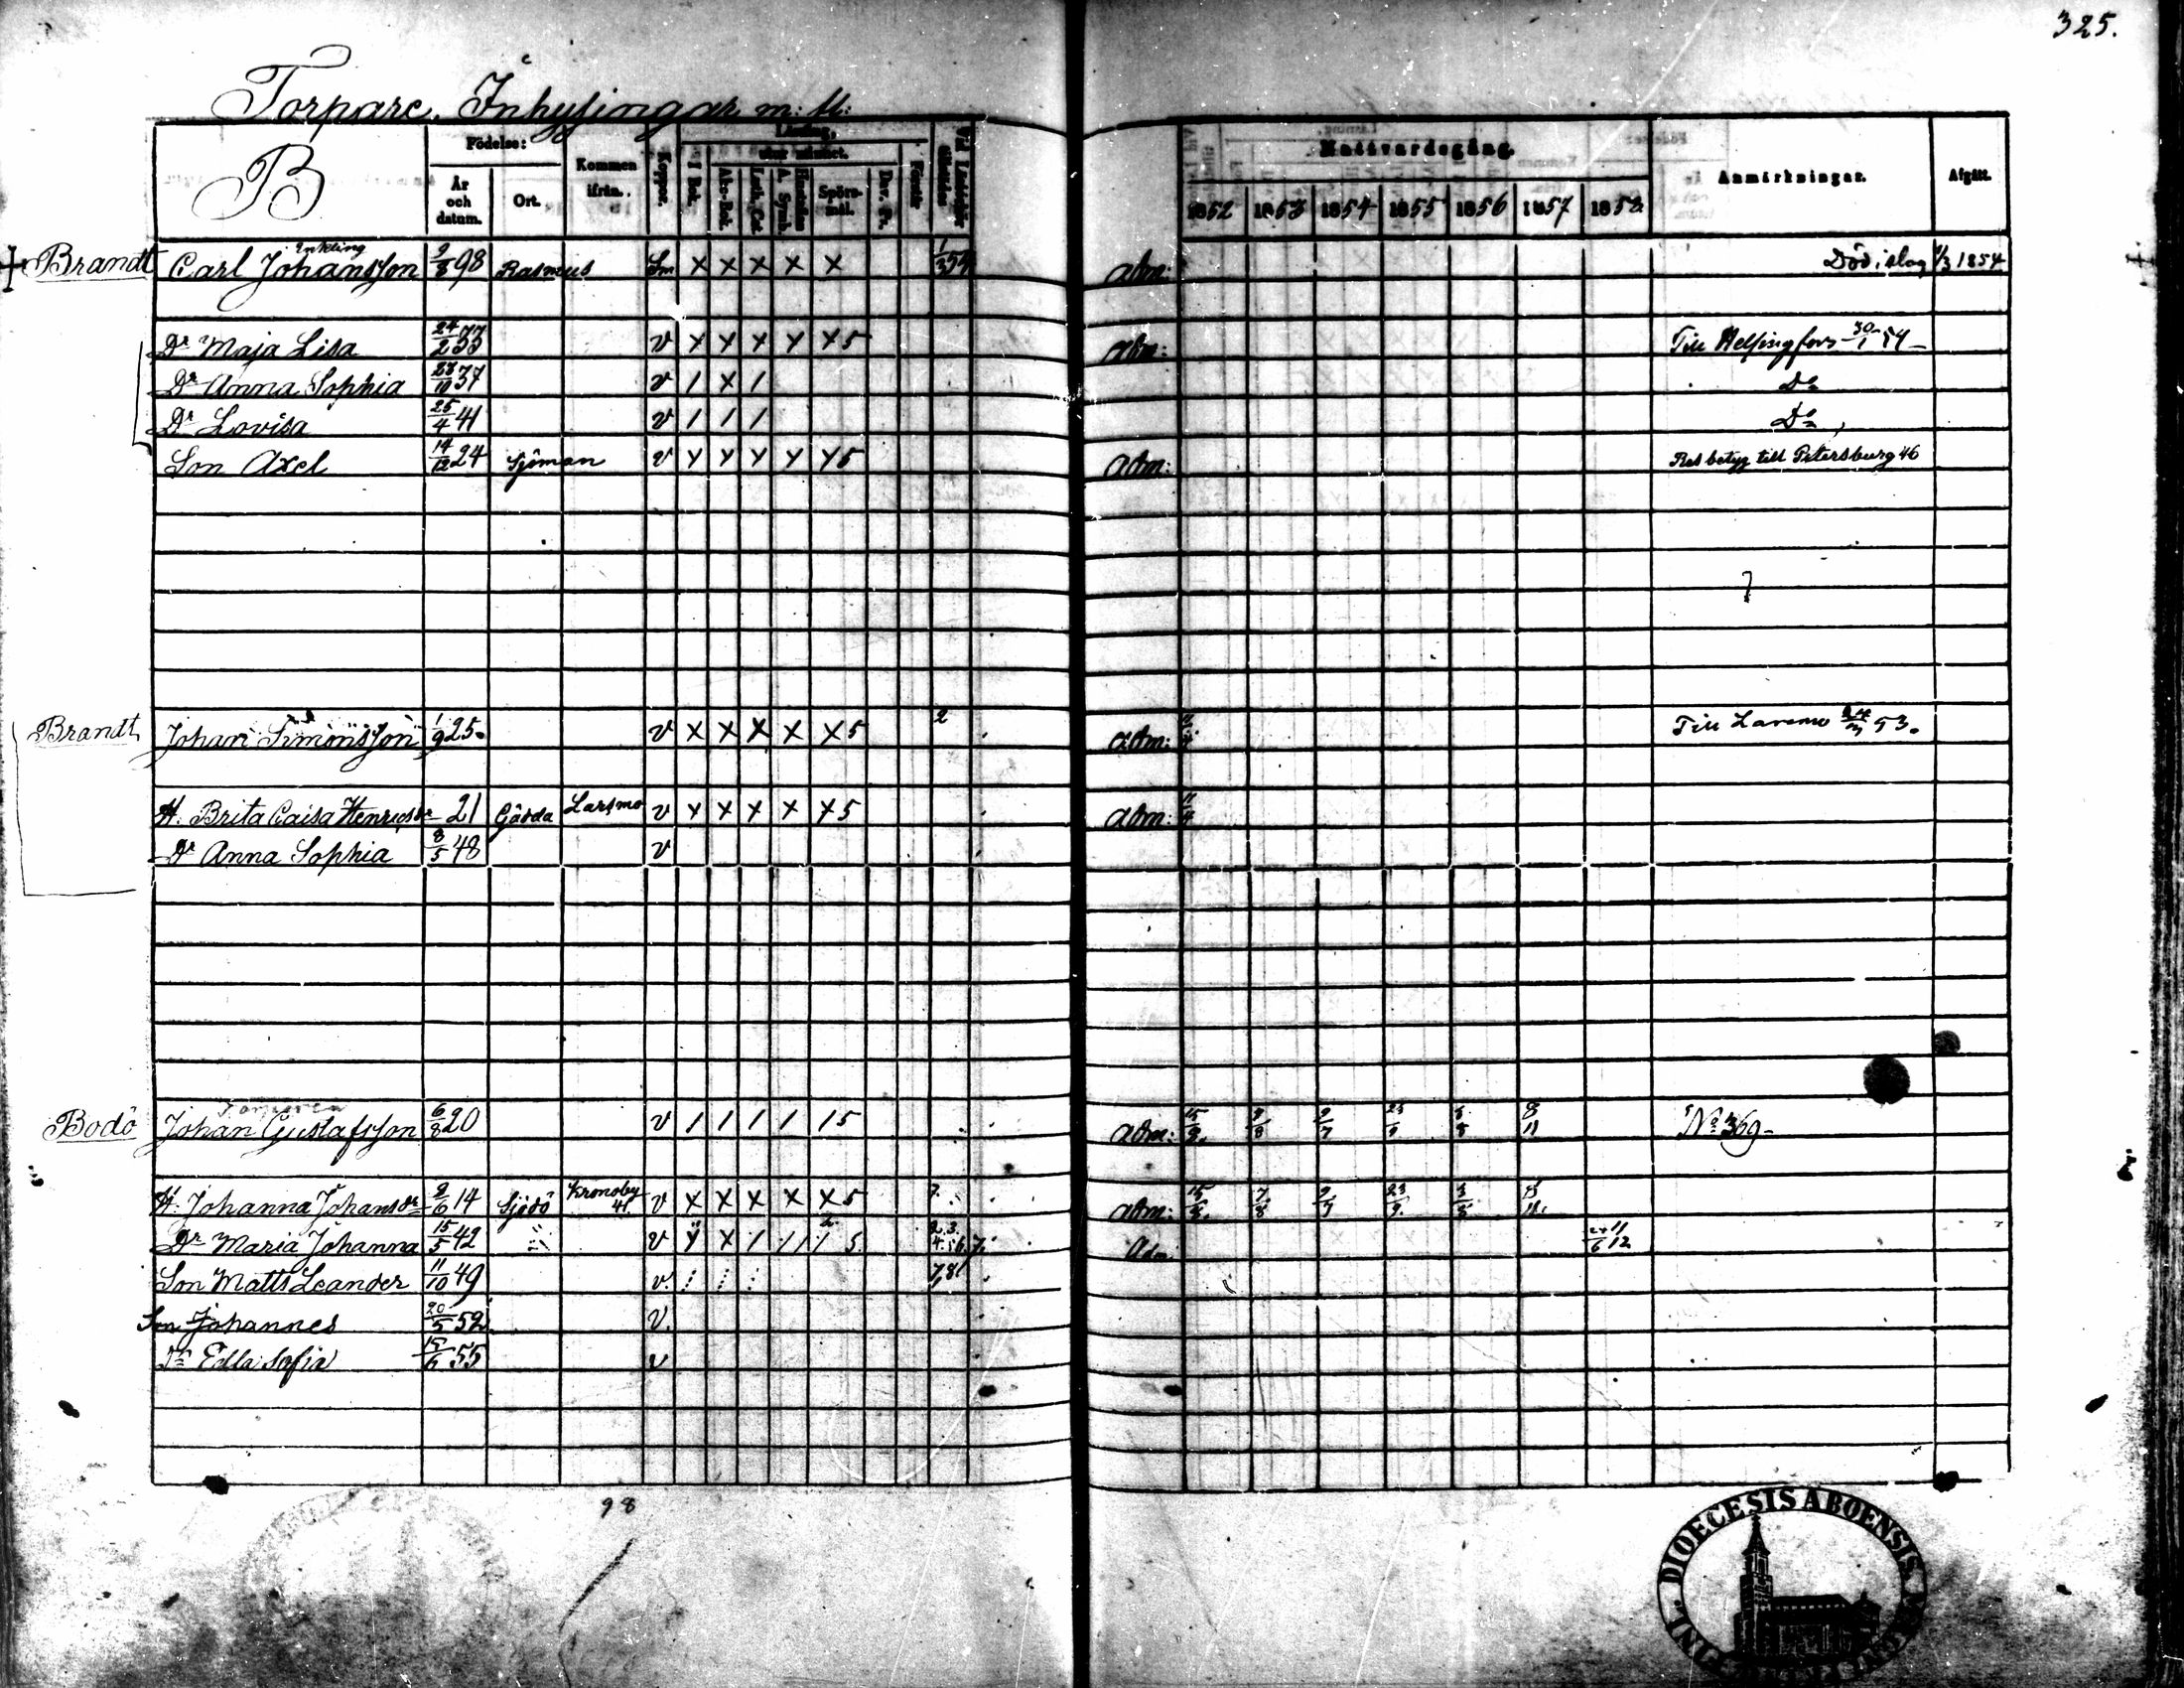 325.
Torpare, Inhysingar m: fl:
B
Födelse:
År och datum.
Ort.
Kommen ifrån.
Koppor.
Läsning,
I Bok.
utur minnet.
Abc-Bok.
Luth. Cat.
A. Symb.
Spörs-mål.
Dav. Ps.
Förstår
Nattvardsgång.
1852 1853 1854 1855 1856 1857 1858
Anmärkningar.
Afgått.
Brandt Carl Johansson Enkling 9/8 98 Rasmus Sm x x x x x 1/3 54 adm: Död i slag 1/3 1854
Dr Maja Lisa 24/2 33 v x x x x x 5 adm: Till Helsingfors 30/1 54
Dr Anna Sophia 28/10 37 v / x / Do
Dr Lovisa 25/4 41 v / / / Do
Son Axel 14/12 24 Sjöman v x x x x x 5 adm: Res betyg till Petersburg 46
Brandt Johan Simonsson 1/9 25. v x x x x x 5 2 adm: Till Larsmo 24/3 53.
H. Brita Caisa Henricsdr 21 Gärda Larsmo v x x x x x 5 adm: 11/4
Dr Anna Sophia 8/5 48 v
Bodö Johan Gustafsson 6/8 20 v / / / / / 5 adm: No 369
H. Johanna Johansdr 8/6 14 Sjödö Kronoby 41. v x x x x x 5 7. adm:
Dr Maria Johanna 15/5 42 v x x / / / 5. Adm
Son Matts Leander 11/10 49 v. / / / 7,8
Son Johannes 20/5 52 v.
Dr Edla Sofia 15/6 55 v
98
DIOECESIS ABOENSIS